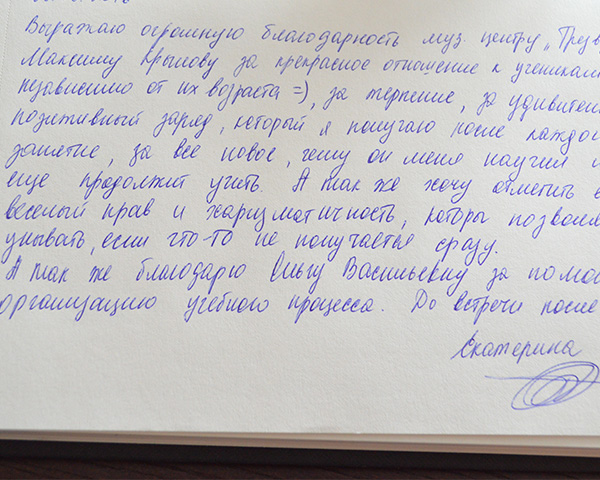 Выражаю огромную благодарность муз. центру „Трев
Максиму Крылову за прекрасное отношение к ученикам
независимо от их возраста =), за терпение, за удивител
позитивный заряд, который я получаю после каждо
занятие, за все новое, чему он меня научил и
еще продолжит учить. А так же хочу отметить е
веселый нрав и харизматичность, которы позволя
унывать, если что-то не получается сразу.
А так же благодарю Ольгу Васильевну за помо
организацию учебного процесса. До встречи после
Екатерина